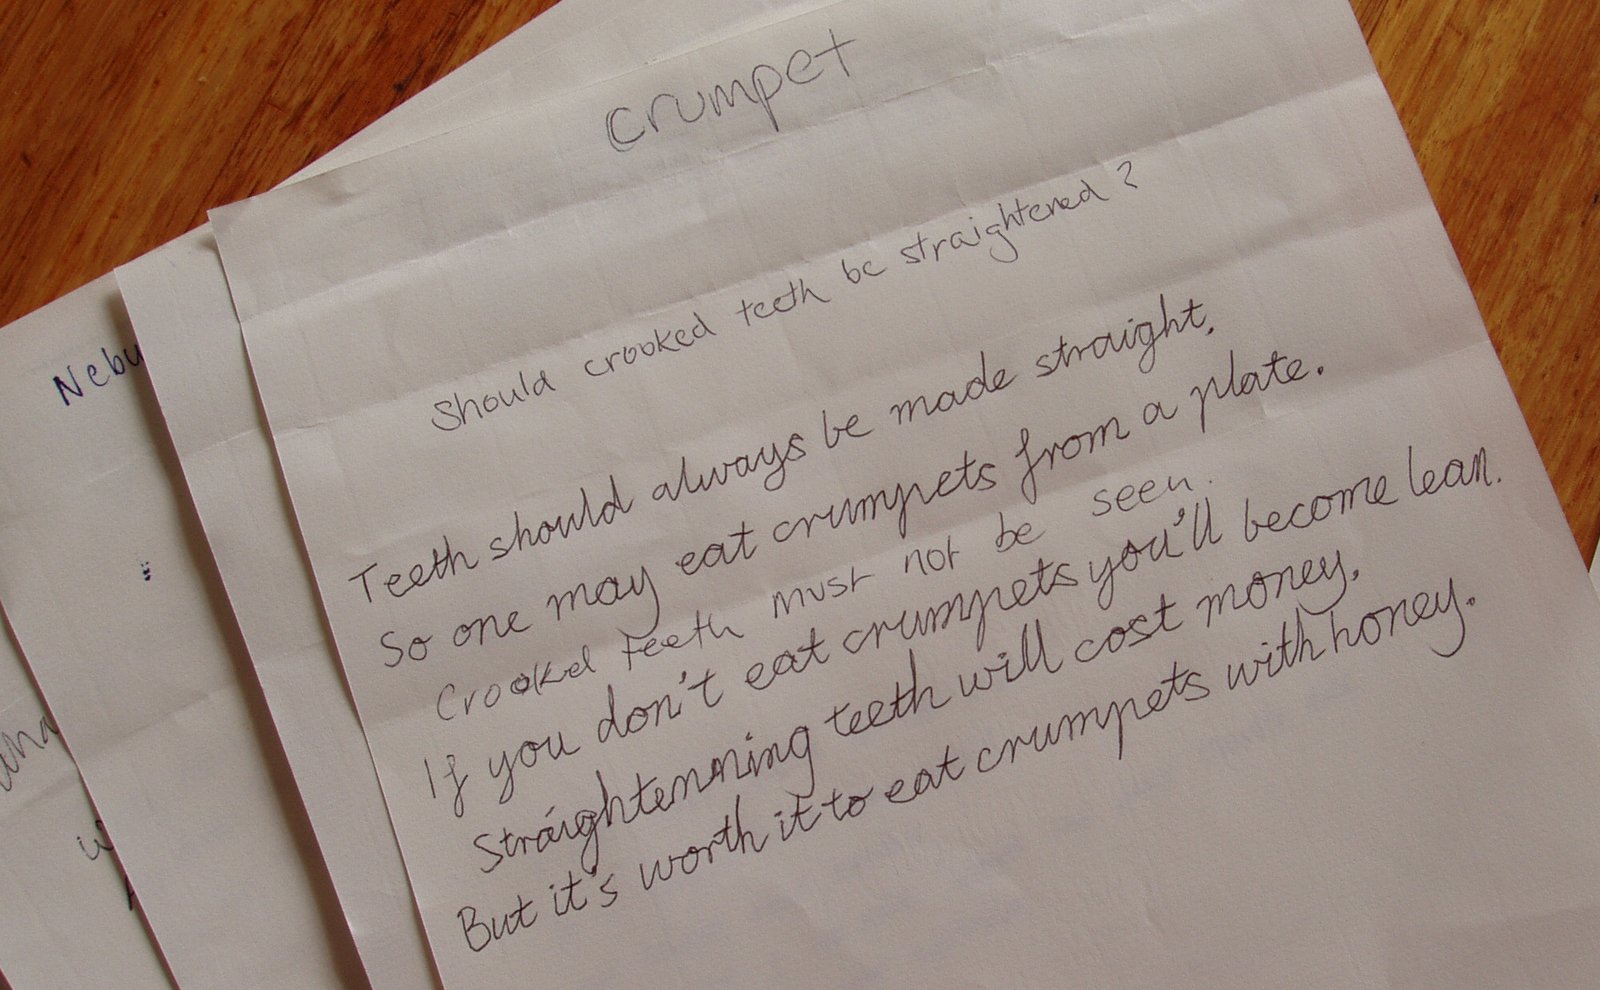 crumpet
Should crooked teeth be straightened?
Teeth should always be made straight.
So one may eat crumpets from a plate.
Crooked teeth must not be seen.
If you don't eat crumpets you'll become lean.
Straightenning teeth will cost money.
But it's worth it to eat crumpets with honey.
Nebu